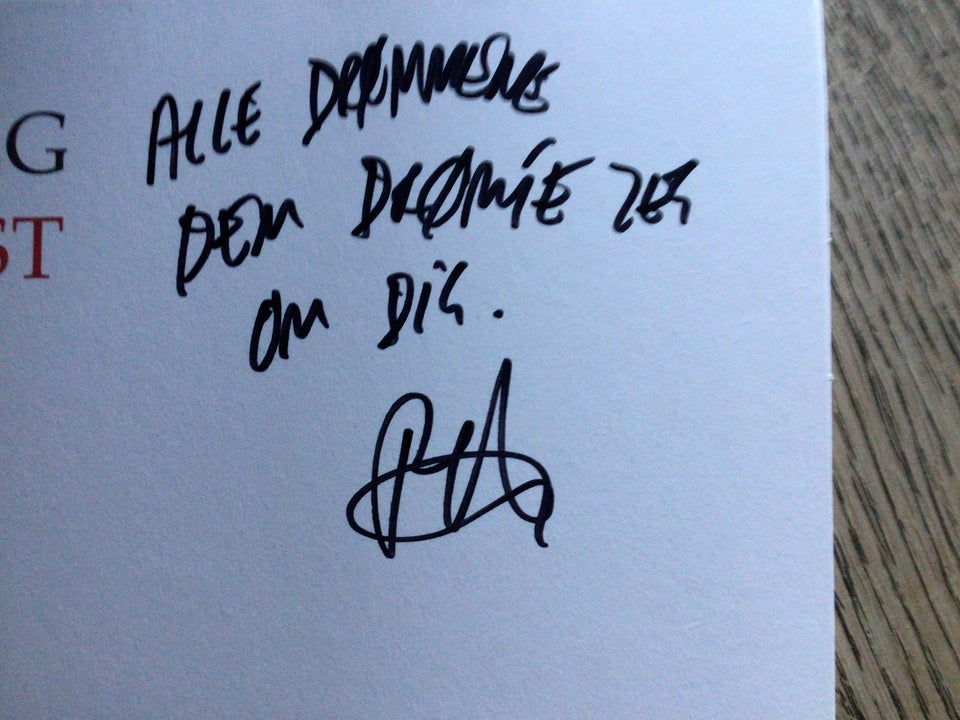 G
ST
ALLE DRØMMENE
DEM DRØMTE JEG
OM DIG.